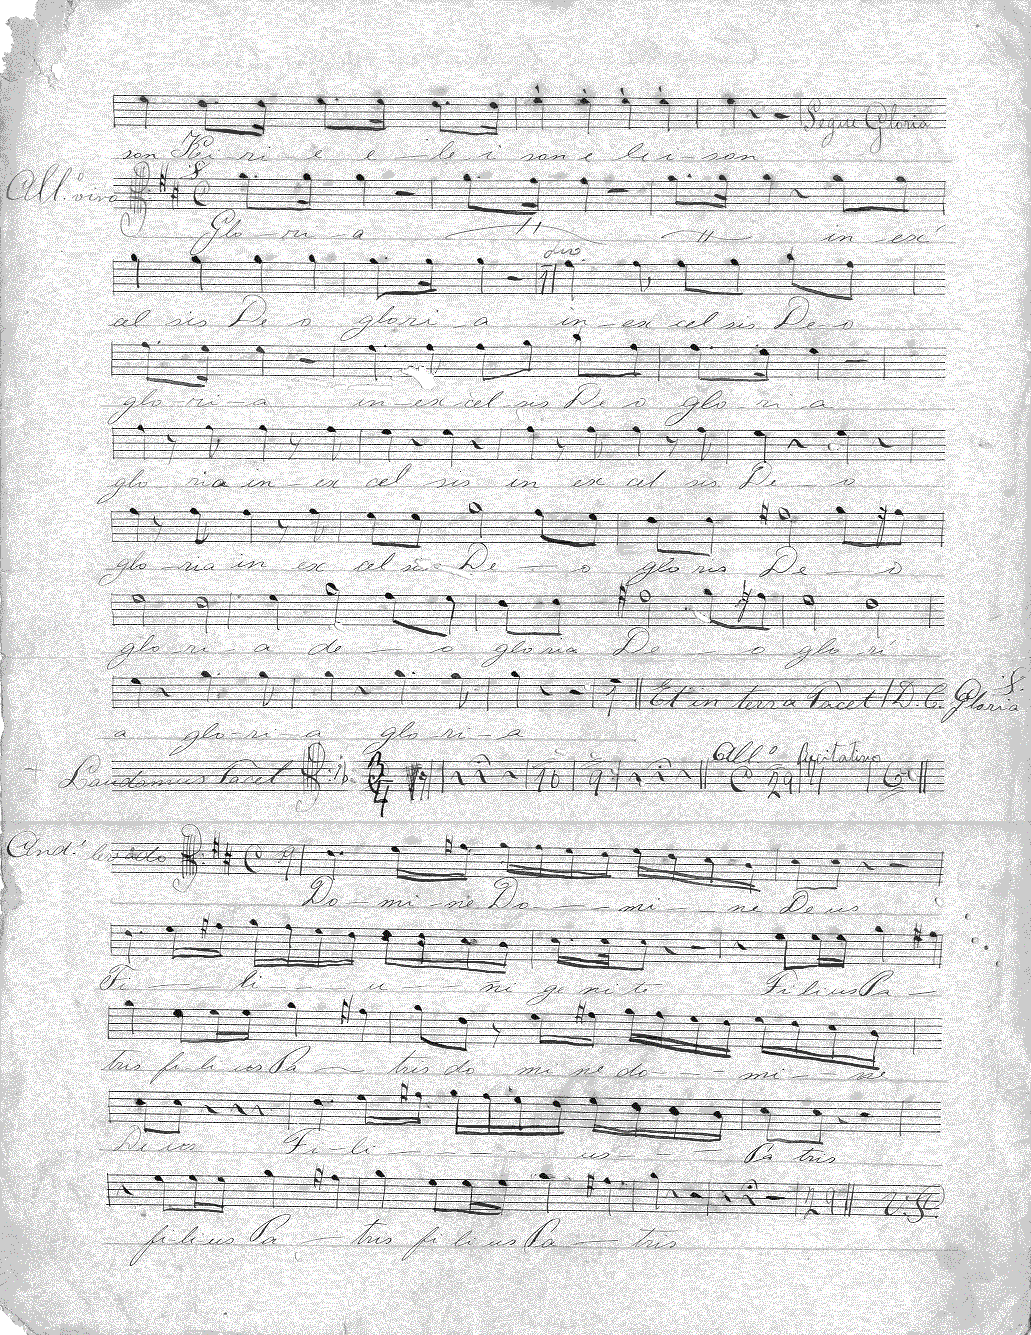 Segue Gloria
son Ki - ri - e e - le i son e le i - son
All.º vivo
Glo - ri - a in excel
cel sis De o glori - a in - ex cel sis De - o
glo - ri - a in - ex cel sis De o glo - ri a
glo ria in - ex cel sis in ex cel sis De - o
glo - ria in ex cel sis De - o glo ris De - o
glo - ri - a de - o gloria De - o glo ri
Et in terra Tacet D. C. Gloria
a glo - ri - a glo - ri - a
Laudamus Tacet 10 9 All.º 29 Recitativo
And.e
Do - mi - ne Do - - - mi - - ne De us
Fi - - - li - - - u - - - ni ge ni te Fi li us Pa -
tris fi - li us Pa - tris do mi ne do - - - mi - - ne
De us Fi - li - - - - - us - - - Pa tris
29 V. S.
fi - li us Pa - tris fi li us Pa - tris